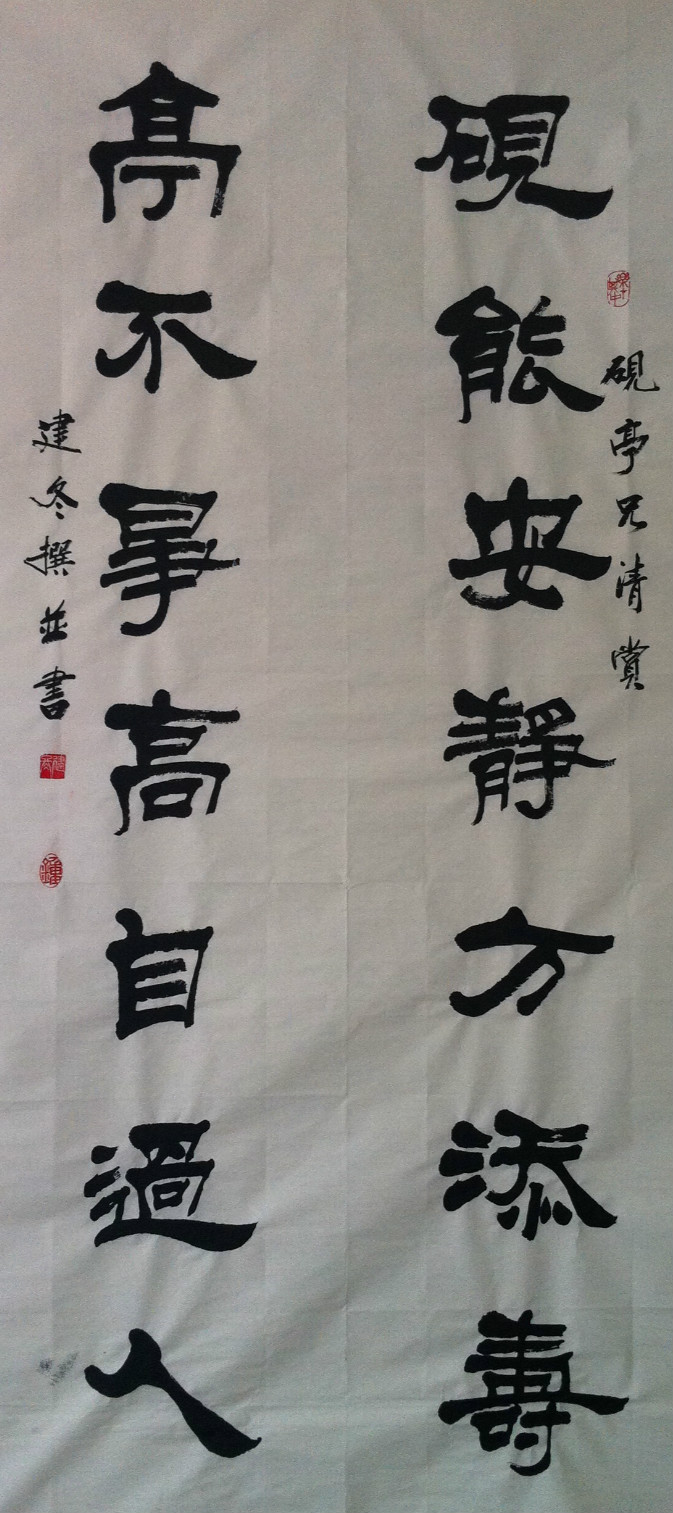 硯亭兄清賞
硯能安靜方添壽
亭不爭高自過人
建冬撰並書